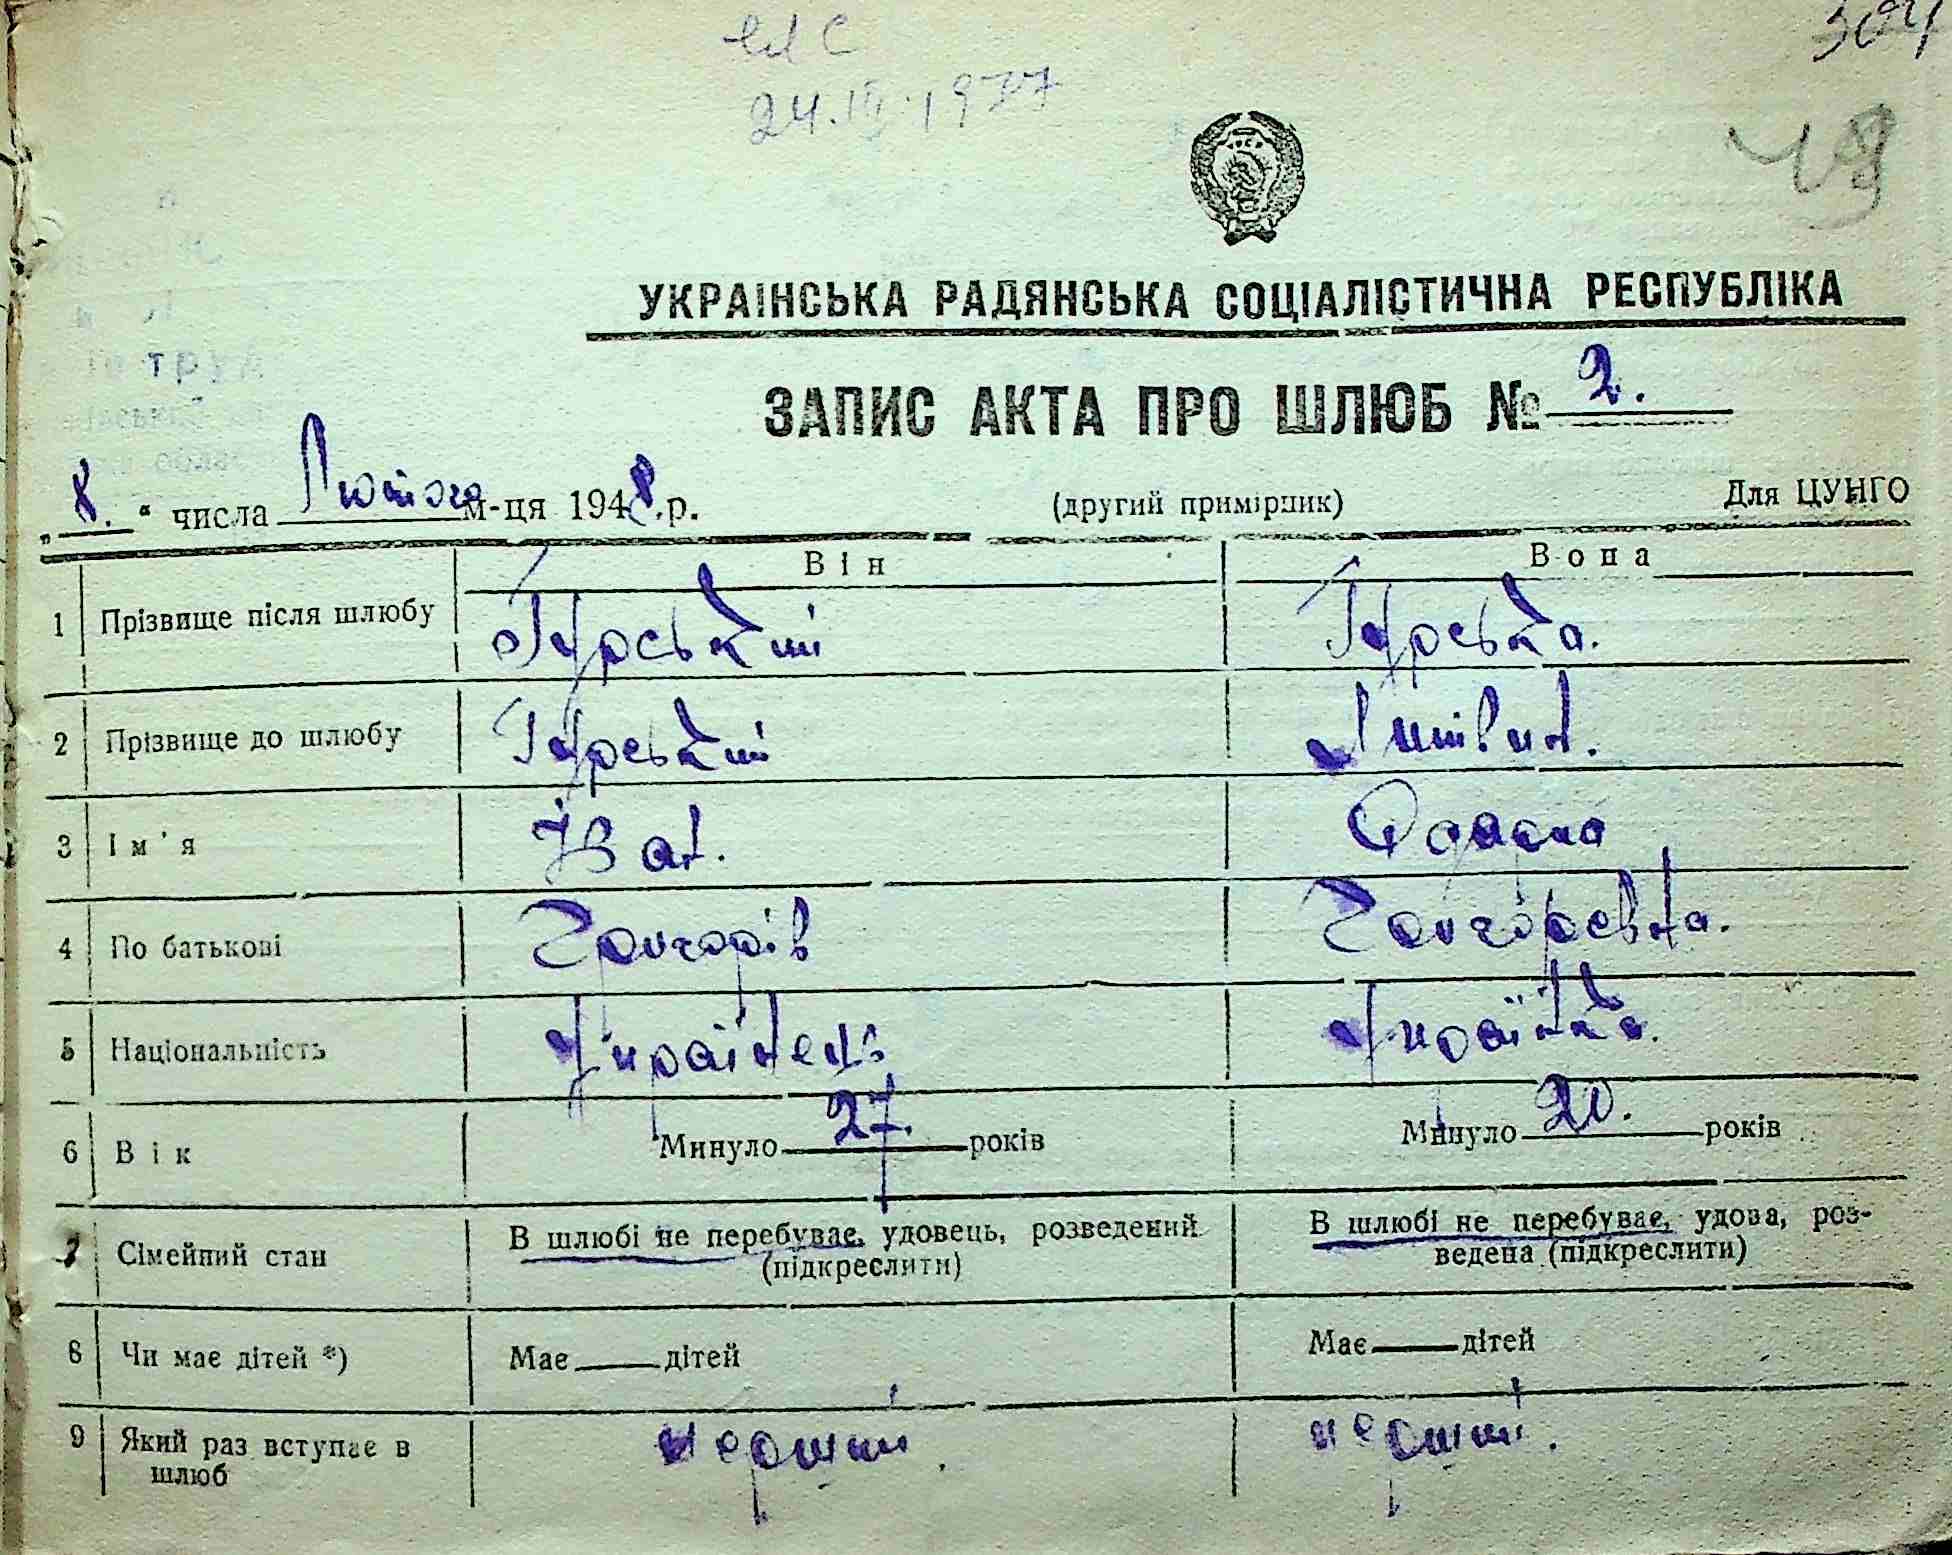 24.ІІІ.1977
304
49
УКРАІНСЬКА РАДЯНСЬКА СОЦІАЛІСТИЧНА РЕСПУБЛІКА
ЗАПИС АКТА ПРО ШЛЮБ № 2.
„8.“ числа Лютого м-ця 1948.р. (другий примірник) Для ЦУНГО
Він Вона
1 Прізвище після шлюбу Гурський Гурська.
2 Прізвище до шлюбу Гурський Литвин.
3 Ім'я Іван. Одарка
4 По батькові Григорів Григоревна.
5 Національність Українець Українка.
6 Вік Минуло 27. років Минуло 20. років
7 Сімейний стан В шлюбі не перебуває, удовець, розведений (підкреслити) В шлюбі не перебуває, удова, роз-
ведена (підкреслити)
8 Чи має дітей *) Має — дітей Має — дітей
9 Який раз вступає в перший перший.
шлюб